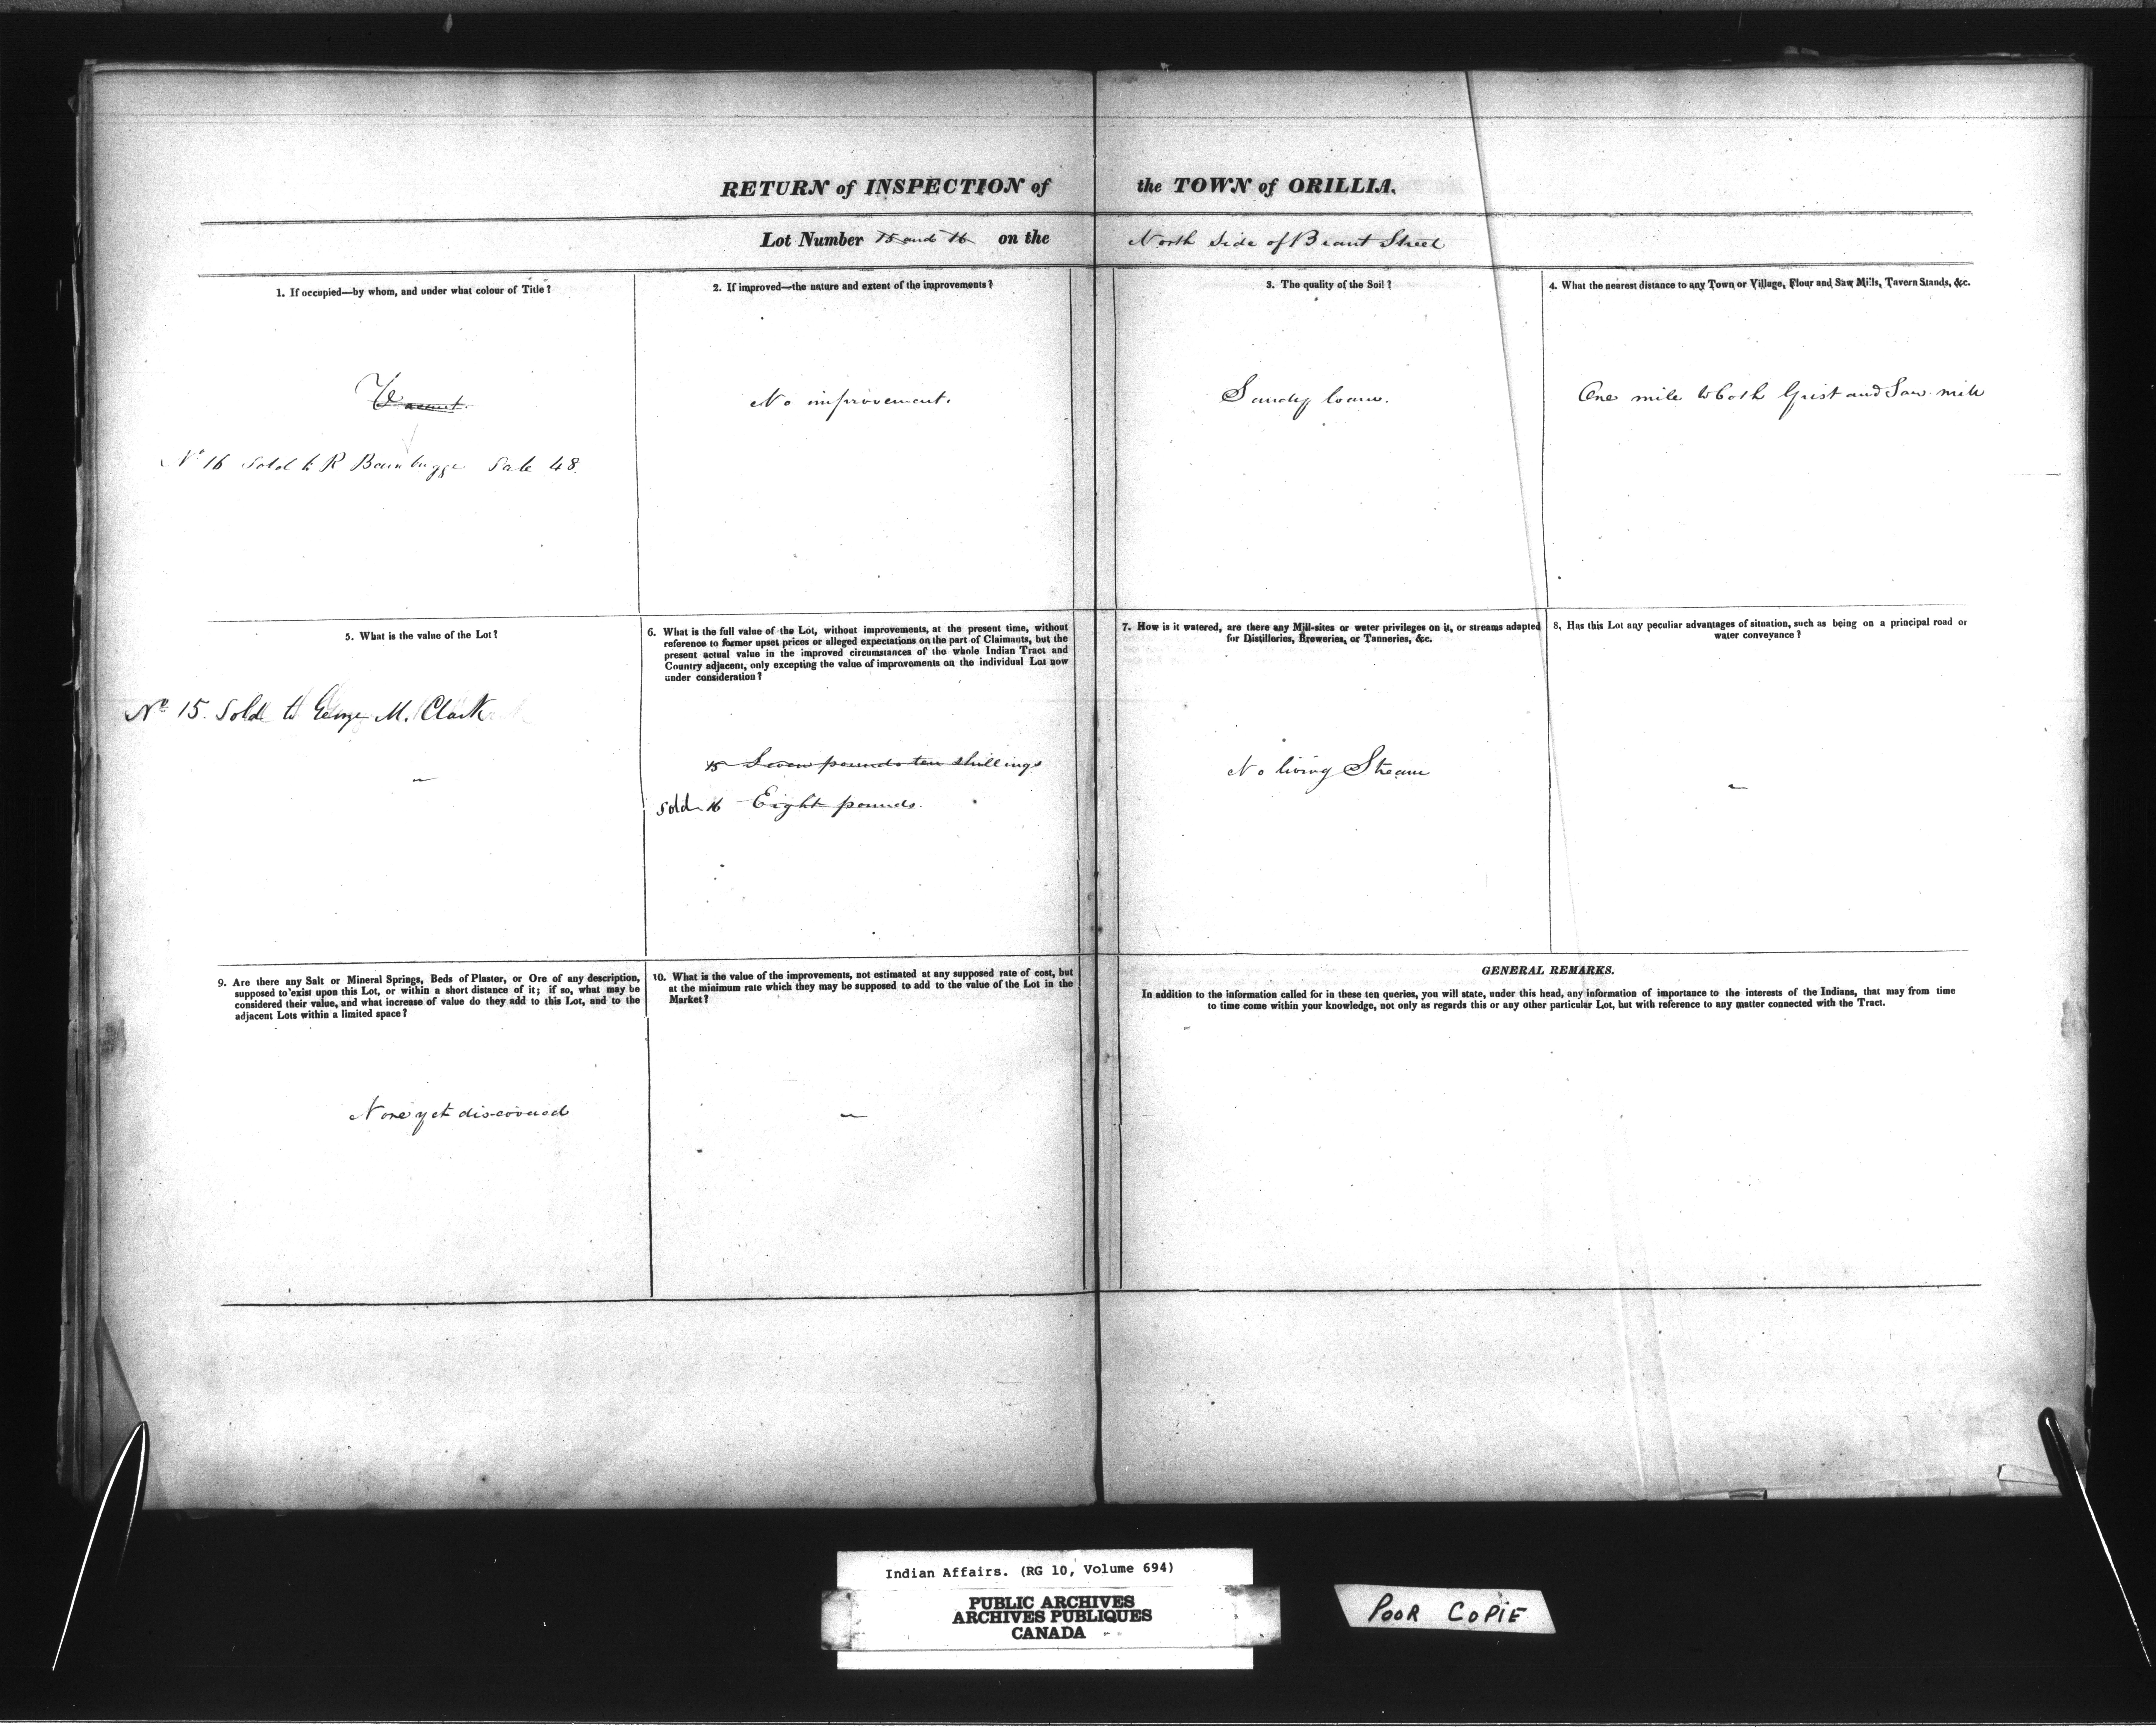 RETURN of INSPECTION of the TOWN of ORILLIA.
Lot Number 15 and 16 on the North Side of Brant Street
1. If occupied—by whom, and under what colour of Title?
Vacant.
No 16 Sold to R Sale 48.
2. If improved—the nature and extent of the improvements?
No improvement.
3. The quality of the Soil?
Sandy loam.
4. What the nearest distance to any Town or Village, Flour and Saw Mills, Tavern Stands, &c.
One mile to both Grist and Saw mill
5. What is the value of the Lot?
No 15. Sold to George M. Clark
—
6. What is the full value of the Lot, without improvements, at the present time, without
reference to former upset prices or alleged expectations on the part of Claimants, but the
present actual value in the improved circumstances of the whole Indian Tract and
Country adjacent, only excepting the value of improvements on the individual Lot now
under consideration?
15 Seven pounds ten shillings
Sold 16 Eight pounds.
7. How is it watered, are there any Mill-sites or water privileges on it, or streams adapted
for Distilleries, Breweries, or Tanneries, &c.
No living Stream
8. Has this Lot any peculiar advantages of situation, such as being on a principal road or
water conveyance?
—
9. Are there any Salt or Mineral Springs, Beds of Plaster, or Ore of any description,
supposed to exist upon this Lot, or within a short distance of it; if so, what may be
considered their value, and what increase of value do they add to this Lot, and to the
adjacent Lots within a limited space?
None yet discovered
10. What is the value of the improvements, not estimated at any supposed rate of cost, but
at the minimum rate which they may be supposed to add to the value of the Lot in the
Market?
—
GENERAL REMARKS.
In addition to the information called for in these ten queries, you will state, under this head, any information of importance to the interests of the Indians, that may from time
to time come within your knowledge, not only as regards this or any other particular Lot, but with reference to any matter connected with the Tract.
Indian Affairs. (RG 10, Volume 694)
PUBLIC ARCHIVES
ARCHIVES PUBLIQUES
CANADA
POOR COPIE